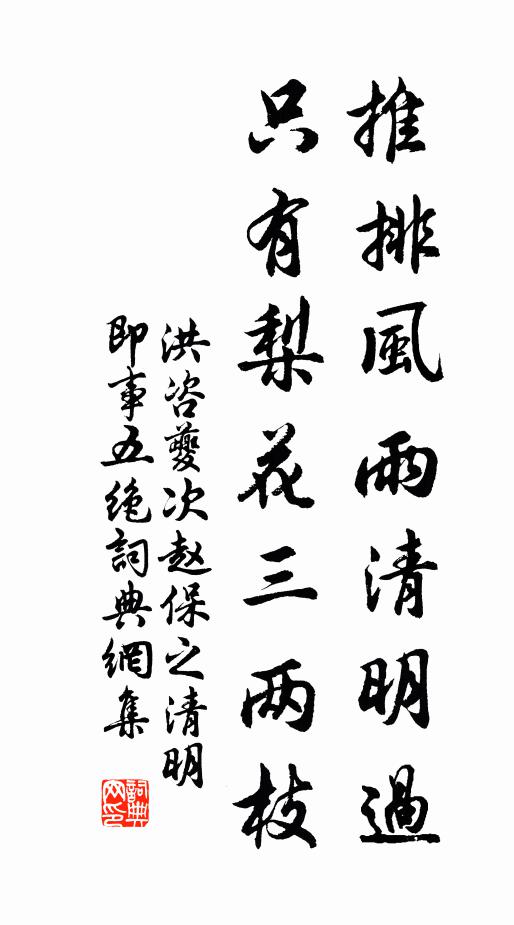 推排風雨清明過
只有梨花三两枝
洪咨夔次赵保之清明
即事五绝詞典網集
詞典网印